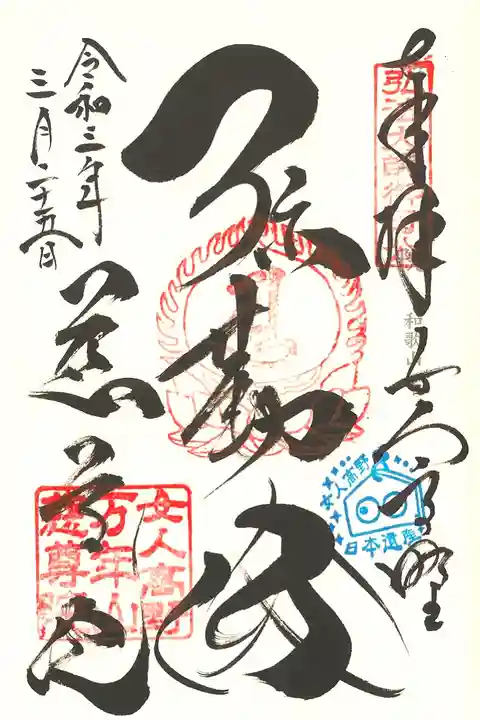 奉拝
女人高野
弥勒佛
慈尊院
令和三年
三月二十五日
弘法大師御
和歌山
女人高野
日本遺産
女人高野
万年山
慈尊院